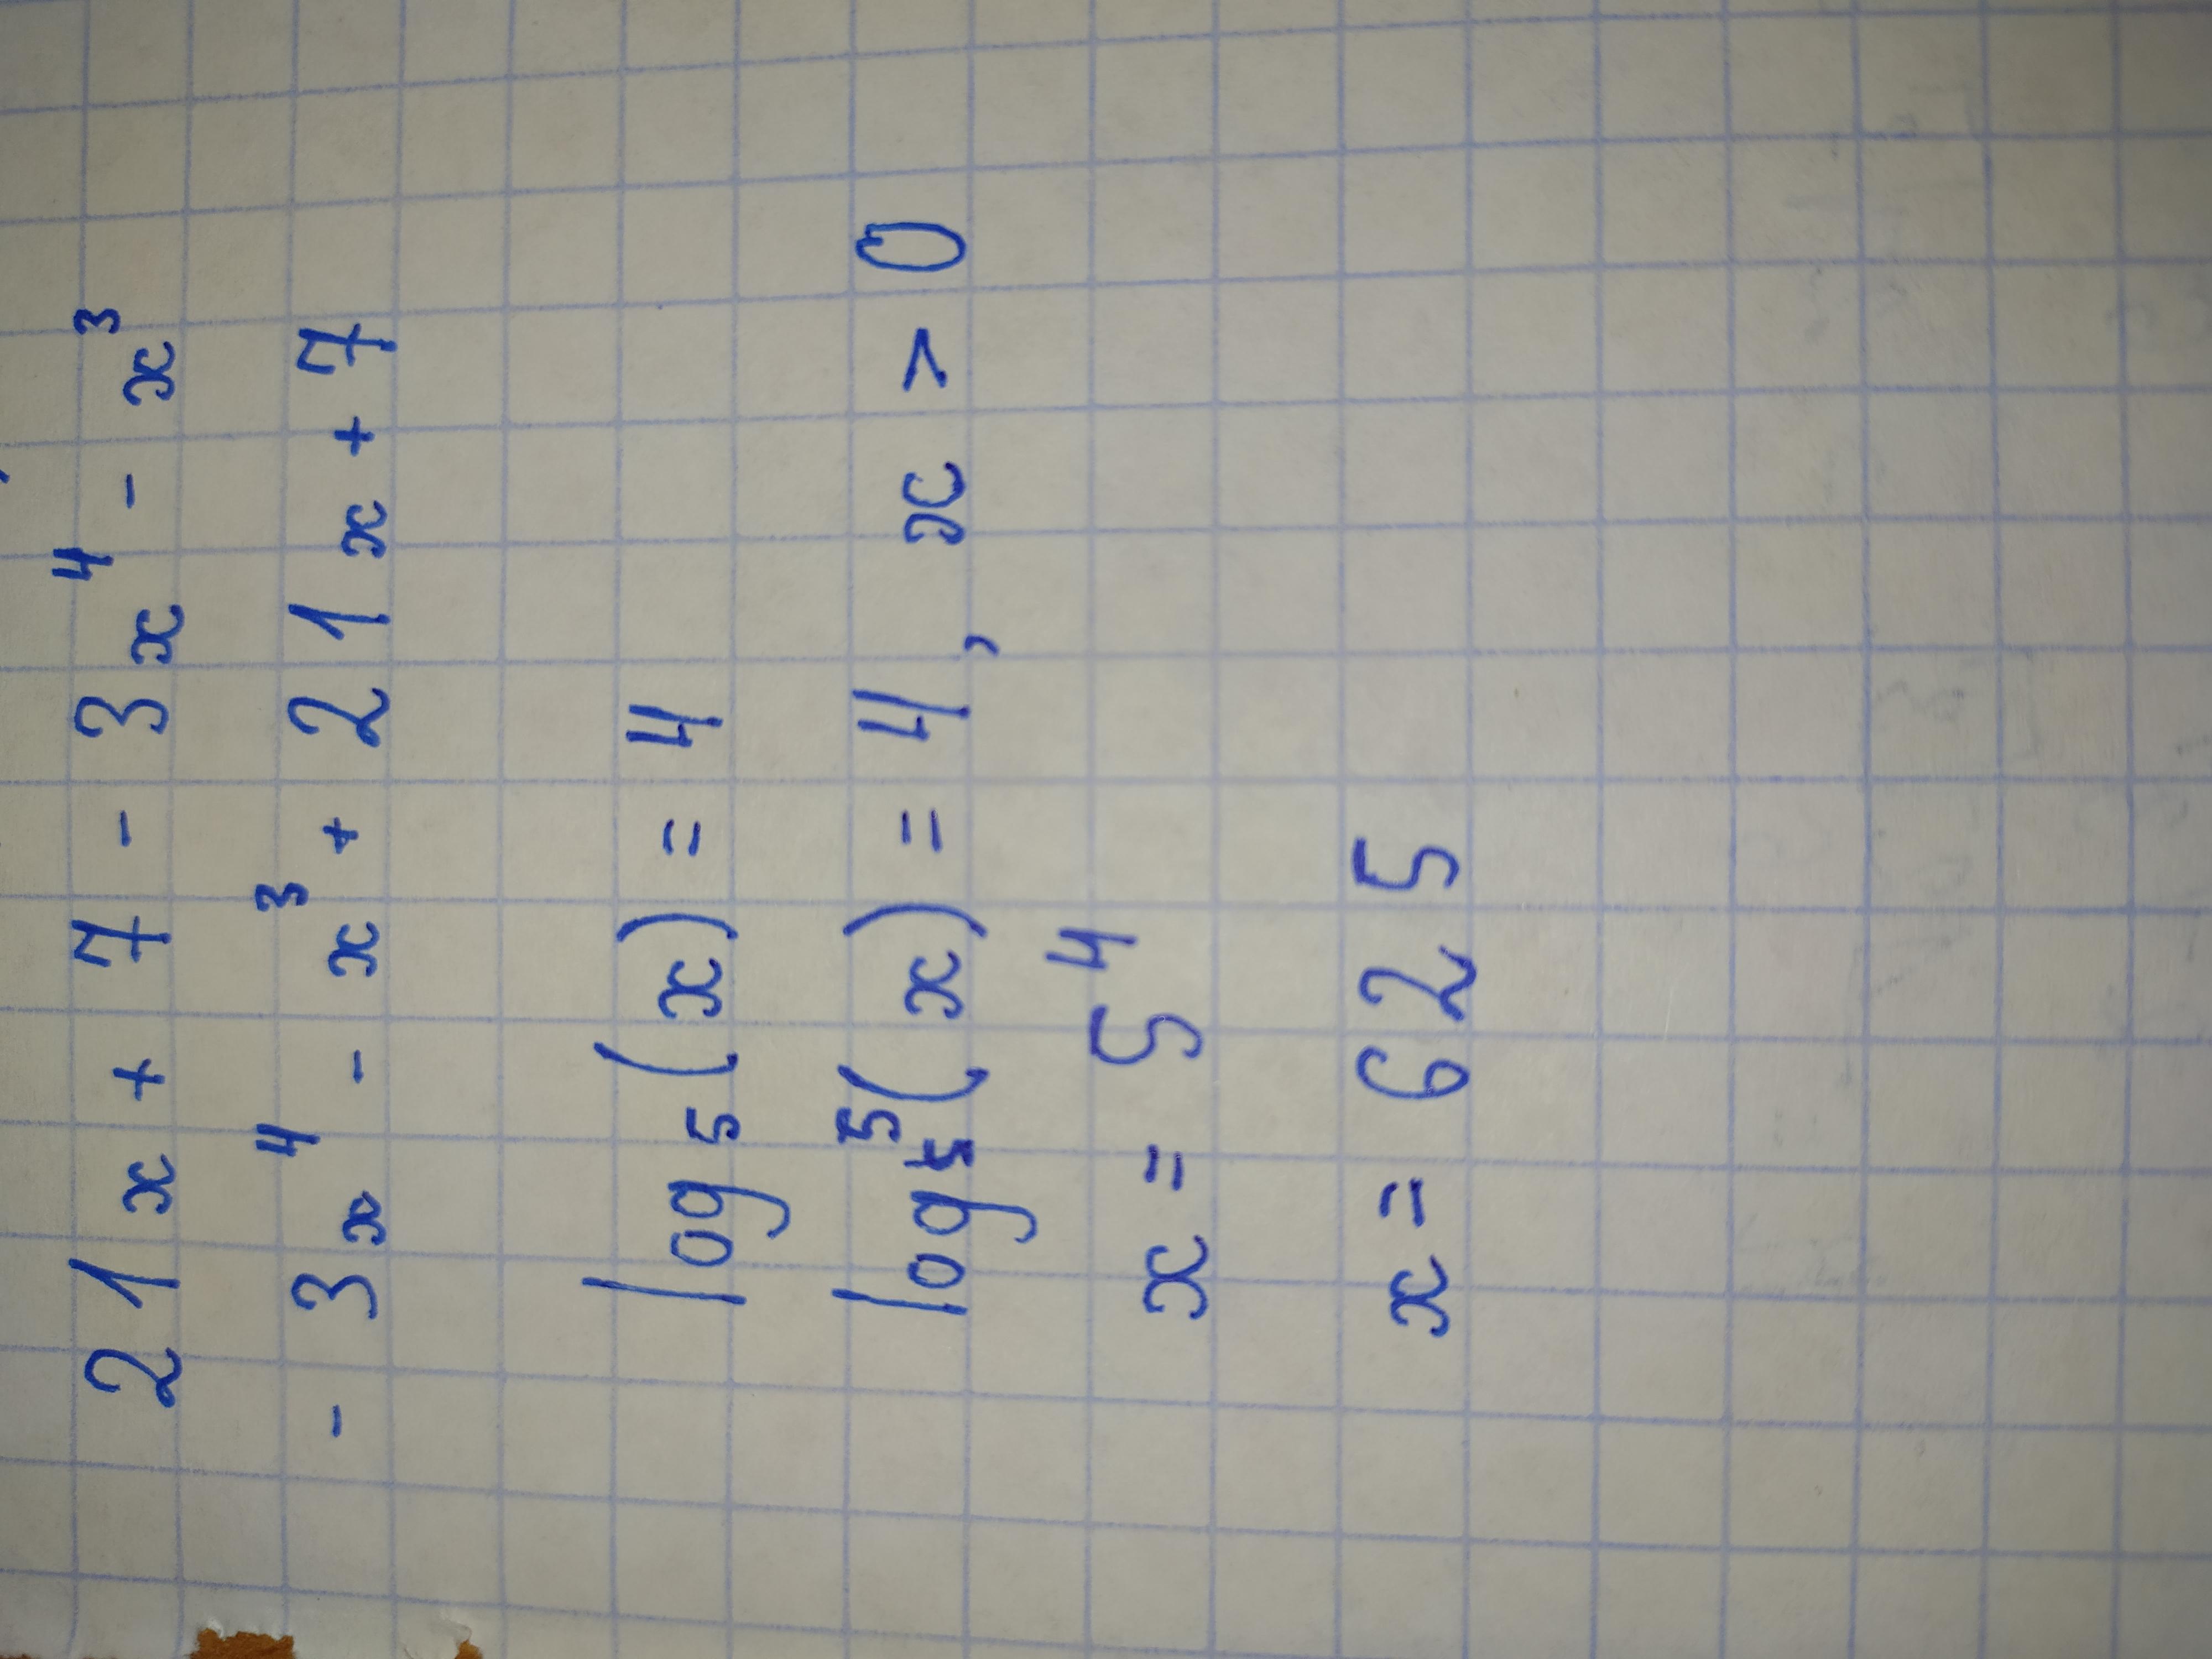 21x + 7 - 3x⁴ - x³
- 3x⁴ - x³ + 21x + 7
log₅(x) = 4
log⁵(x) = 4, x > 0
x = 5⁴
x = 625